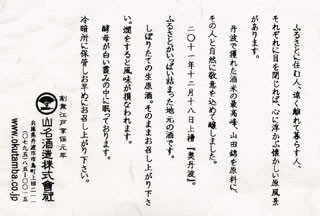 ふるさとに住む人、遠く離れて暮らす人、
それぞれに目を閉じれば、心に浮かぶ懐かしい原風景
があります。
丹波で獲れた酒米の最高峰、山田錦を原料に、
その人と自然に敬意を込めて醸しました。
二〇十一年十二月十八日上槽「奥丹波」。
ふるさとがいっぱい詰まった地元の酒です。
しぼりたての生原酒。そのままお召し上がり下さ
い。燗をすると風味が損なわれます。
酵母が白い霞みの中に眠っております。
冷暗所に保管しお早めにお召し上がり下さい。
創業 江戸享保元年
山名酒造株式會社
兵庫県丹波市市島町上田二一一
〇七九五-八五-〇〇一五
www.okutamba.co.jp